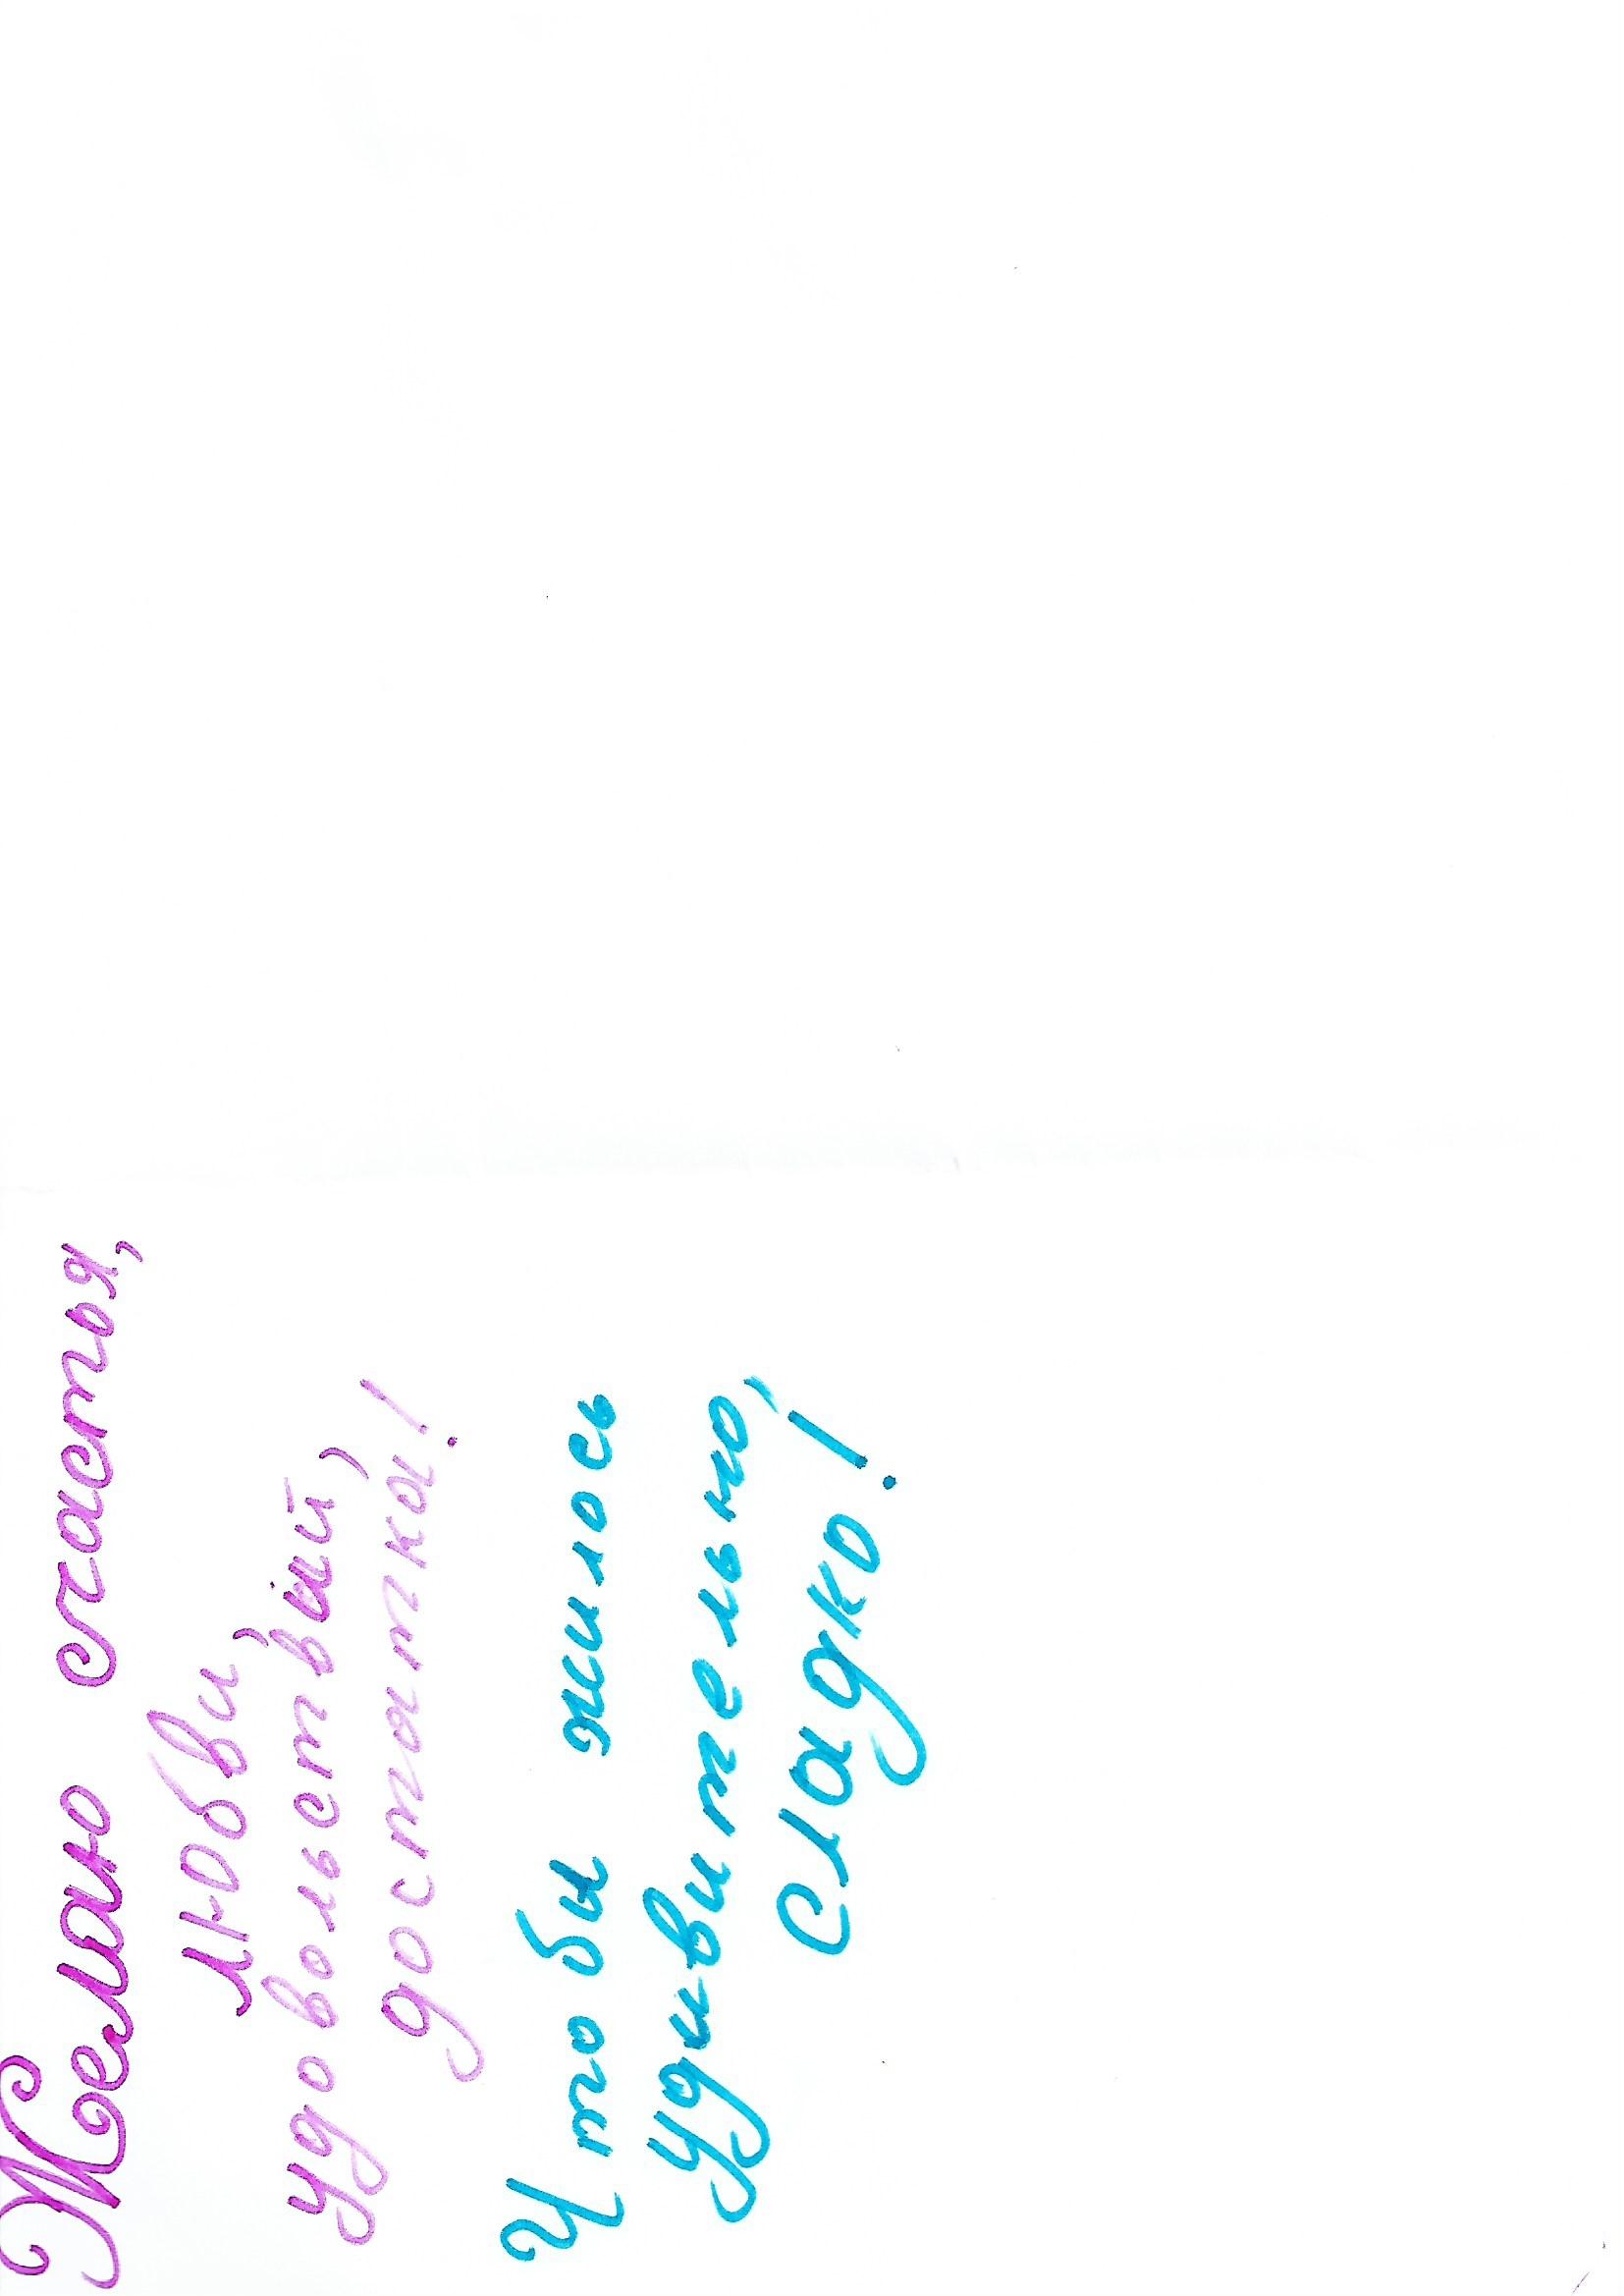 Желаю счастья,
любви,
удовольствий,
достатка!
Чтобы жилось
удивительно,
сладко!